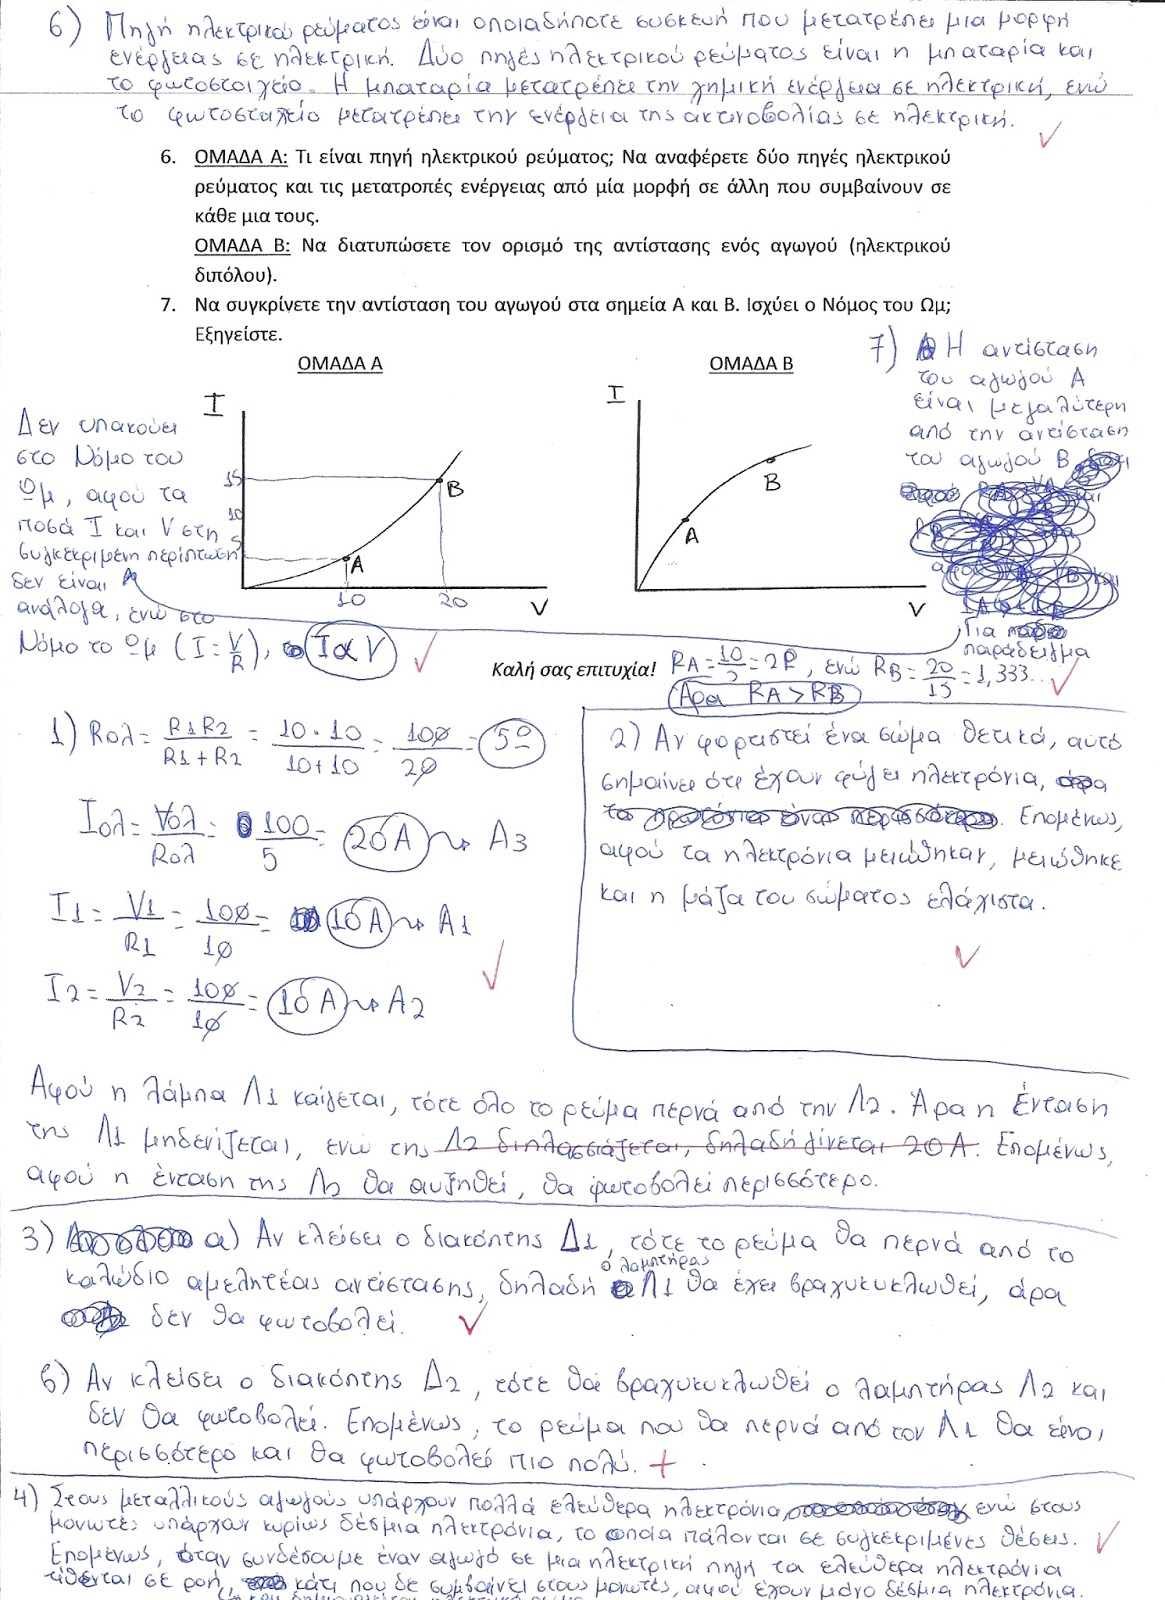 6) Πηγή ηλεκτρικού ρεύματος είναι οποιαδήποτε συσκευή που μετατρέπει μια μορφή
ενέργειας σε ηλεκτρική. Δύο πηγές ηλεκτρικού ρεύματος είναι η μπαταρία και
το φωτοστοιχείο. Η μπαταρία μετατρέπει την χημική ενέργεια σε ηλεκτρική, ενώ
το φωτοστοιχείο μετατρέπει την ενέργεια της ακτινοβολίας σε ηλεκτρική.
6. ΟΜΑΔΑ Α: Τι είναι πηγή ηλεκτρικού ρεύματος; Να αναφέρετε δύο πηγές ηλεκτρικού
ρεύματος και τις μετατροπές ενέργειας από μία μορφή σε άλλη που συμβαίνουν σε
κάθε μια τους.
ΟΜΑΔΑ Β: Να διατυπώσετε τον ορισμό της αντίστασης ενός αγωγού (ηλεκτρικού
διπόλου).
7. Να συγκρίνετε την αντίσταση του αγωγού στα σημεία Α και Β. Ισχύει ο Νόμος του Ωμ;
Εξηγείστε.
ΟΜΑΔΑ Α
ΟΜΑΔΑ Β
I
15
10
5
A
B
10
20
V
I
A
B
V
Δεν υπακούει
στο Νόμο του
Ωμ, αφού τα
ποσά I και V στη
συγκεκριμένη περίπτωση
δεν είναι
ανάλογα, ενώ στο
Νόμο το Ωμ (I = V/R), I α V
7) Η αντίσταση
του αγωγού Α
είναι μεγαλύτερη
από την αντίσταση
του αγωγού Β
Για
παράδειγμα
Καλή σας επιτυχία!
RA = 10/5 = 2Ω, ενώ RB = 20/15 = 1,333..
Άρα RA > RB
1) Rολ = R1R2/R1+R2 = 10·10/10+10 = 100/20 = 5Ω
Iολ = Vολ/Rολ = 100/5 = 20A ⇝ A3
I1 = V1/R1 = 100/10 = 10A ⇝ A1
I2 = V2/R2 = 100/10 = 10A ⇝ A2
2) Αν φορτιστεί ένα σώμα θετικά, αυτό
σημαίνει ότι έχουν φύγει ηλεκτρόνια,
Επομένως,
αφού τα ηλεκτρόνια μειώθηκαν, μειώθηκε
και η μάζα του σώματος ελάχιστα.
Αφού η λάμπα Λ1 καίγεται, τότε όλο το ρεύμα περνά από την Λ2. Άρα η Ένταση
της Λ1 μηδενίζεται, ενώ της Λ2 διπλασιάζεται, δηλαδή γίνεται 20A. Επομένως,
αφού η ένταση της Λ2 θα αυξηθεί, θα φωτοβολεί περισσότερο.
3) α) Αν κλείσει ο διακόπτης Δ1, τότε το ρεύμα θα περνά από το
καλώδιο αμελητέας αντίστασης, δηλαδή ο λαμπτήρας Λ1 θα έχει βραχυκυκλωθεί, άρα
δεν θα φωτοβολεί.
β) Αν κλείσει ο διακόπτης Δ2, τότε θα βραχυκυκλωθεί ο λαμπτήρας Λ2 και
δεν θα φωτοβολεί. Επομένως, το ρεύμα που θα περνά από τον Λ1 θα είναι
περισσότερο και θα φωτοβολεί πιο πολύ.
4) Στους μεταλλικούς αγωγούς υπάρχουν πολλά ελεύθερα ηλεκτρόνια, ενώ στους
μονωτές υπάρχουν κυρίως δέσμια ηλεκτρόνια, το οποία πάλονται σε συγκεκριμένες θέσεις.
Επομένως, όταν συνδέσουμε έναν αγωγό σε μια ηλεκτρική πηγή τα ελεύθερα ηλεκτρόνια
τίθενται σε ροή, κάτι που δε συμβαίνει στους μονωτές, αφού έχουν μόνο δέσμια ηλεκτρόνια.